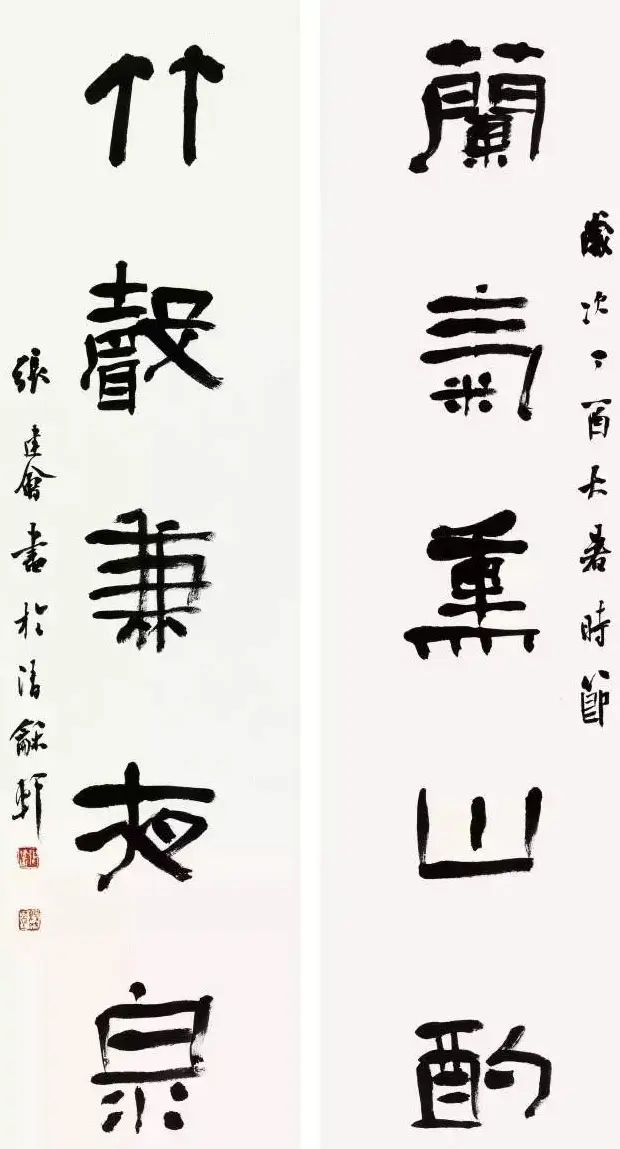 歲次丁酉大暑時節
蘭氣薰山酌
竹聲兼夜泉
張建會書於清龢軒